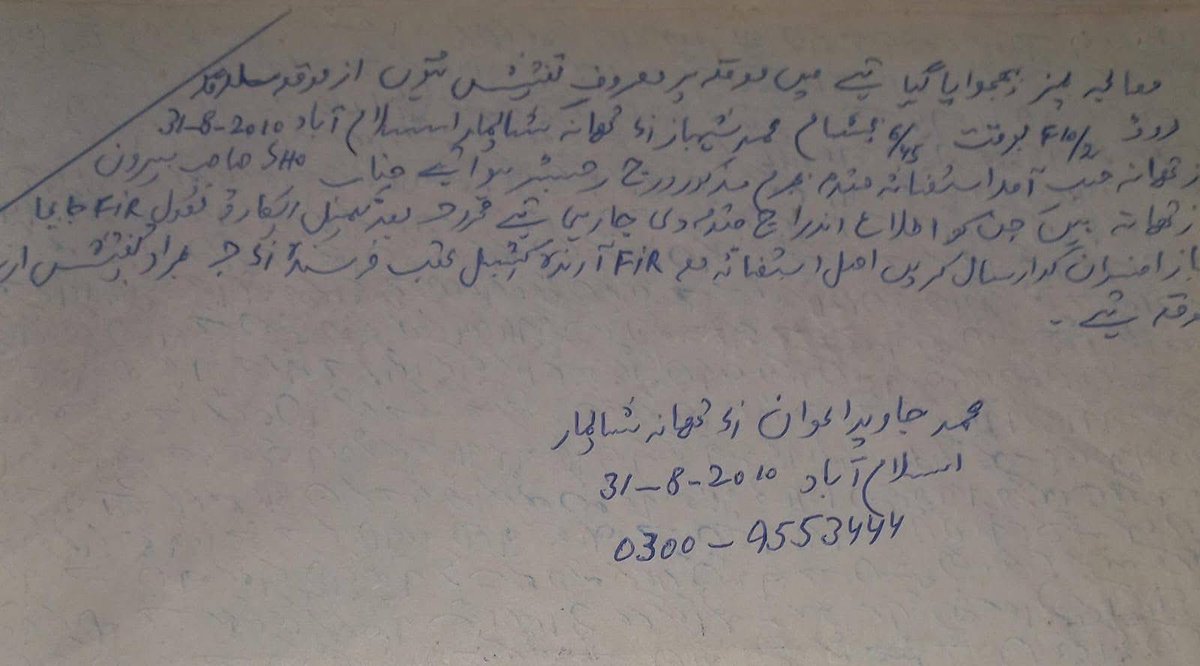 معالجہ پمز بھجوایا گیا ہے میں موقعہ پر مصروف تفتیش ہوں از موقعہ
روڈ F10/2 بوقت 6/45 بجے شام محمد شہباز تھانہ شالیمار اسلام آباد 31-8-2010
از تھانہ حسب آمد استغاثہ مقدمہ بجرم مذکور درج رجسٹر ہوا ہے جناب SHO صاحب بیرون
از تھانہ ہیں جن کو اطلاع اندراج مقدمہ دی جا رہی ہے محرر بعد تکمیل ریکارڈ نقول FIR
افسران کو ارسال کریں اصل استغاثہ مع FIR آرندہ کنسٹیبل بمراد تفتیش
موقعہ ہے ۔
محمد جاوید اعوان تھانہ شالیمار
اسلام آباد 31-8-2010
0300-9553444